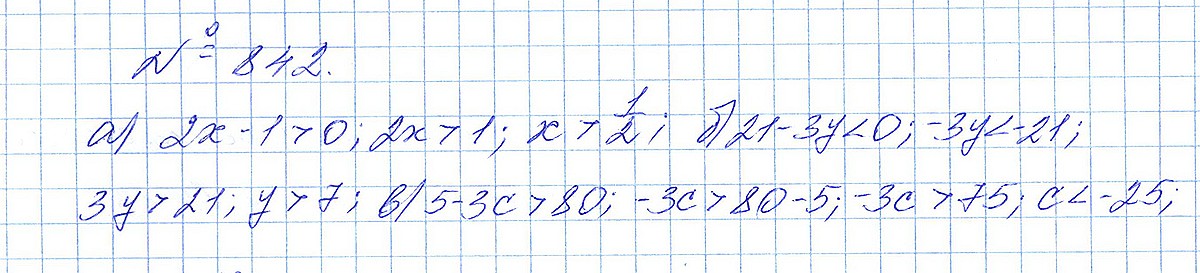 № 842.
а) 2x - 1 > 0; 2x > 1; x > 1/2; б) 21 - 3y < 0; -3y < -21;
3y > 21; y > 7; в) 5 - 3c > 80; -3c > 80 - 5; -3c > 75; c < -25;